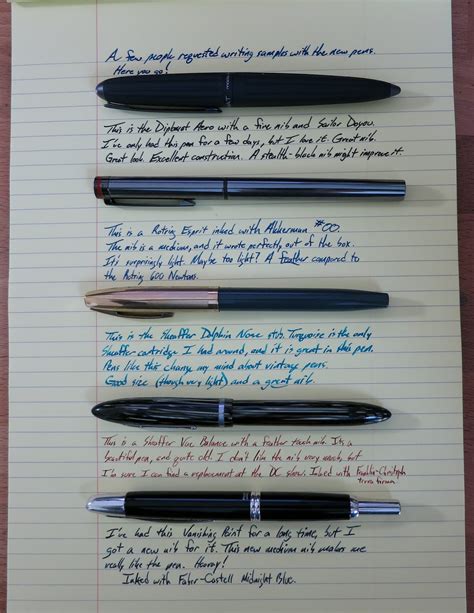 A few people requested writing samples with the new pens.
Here you go!
This is the Diplomat Aero with a fine nib and Sailor Doyou.
I've only had this pen for a few days, but I love it. Great nib.
Great look. Excellent construction. A stealth-black nib might improve it.
This is a Rotring Esprit inked with Akkerman #00.
The nib is a medium, and it wrote perfectly out of the box.
It's surprisingly light. Maybe too light? A feather compared to
the Rotring 600 Newton.
This is the Sheaffer Dolphin Nose Turquoise is the only
Sheaffer cartridge I had around, and it is great in this pen.
Pens like this change my mind about vintage pens.
Good size (though very light) and a great nib.
This is a Sheaffer Balance with a feather touch nib. It's a
beautiful pen, and quite old. I don't like the nib very much, but
I'm sure I can find a replacement at the DC show. Inked with Franklin-Christoph
terra firma
I've had this Vanishing Point for a long time, but I
got a new nib for it. This new medium nib makes me
really like the pen. Hooray!
Inked with Faber-Castell Midnight Blue.